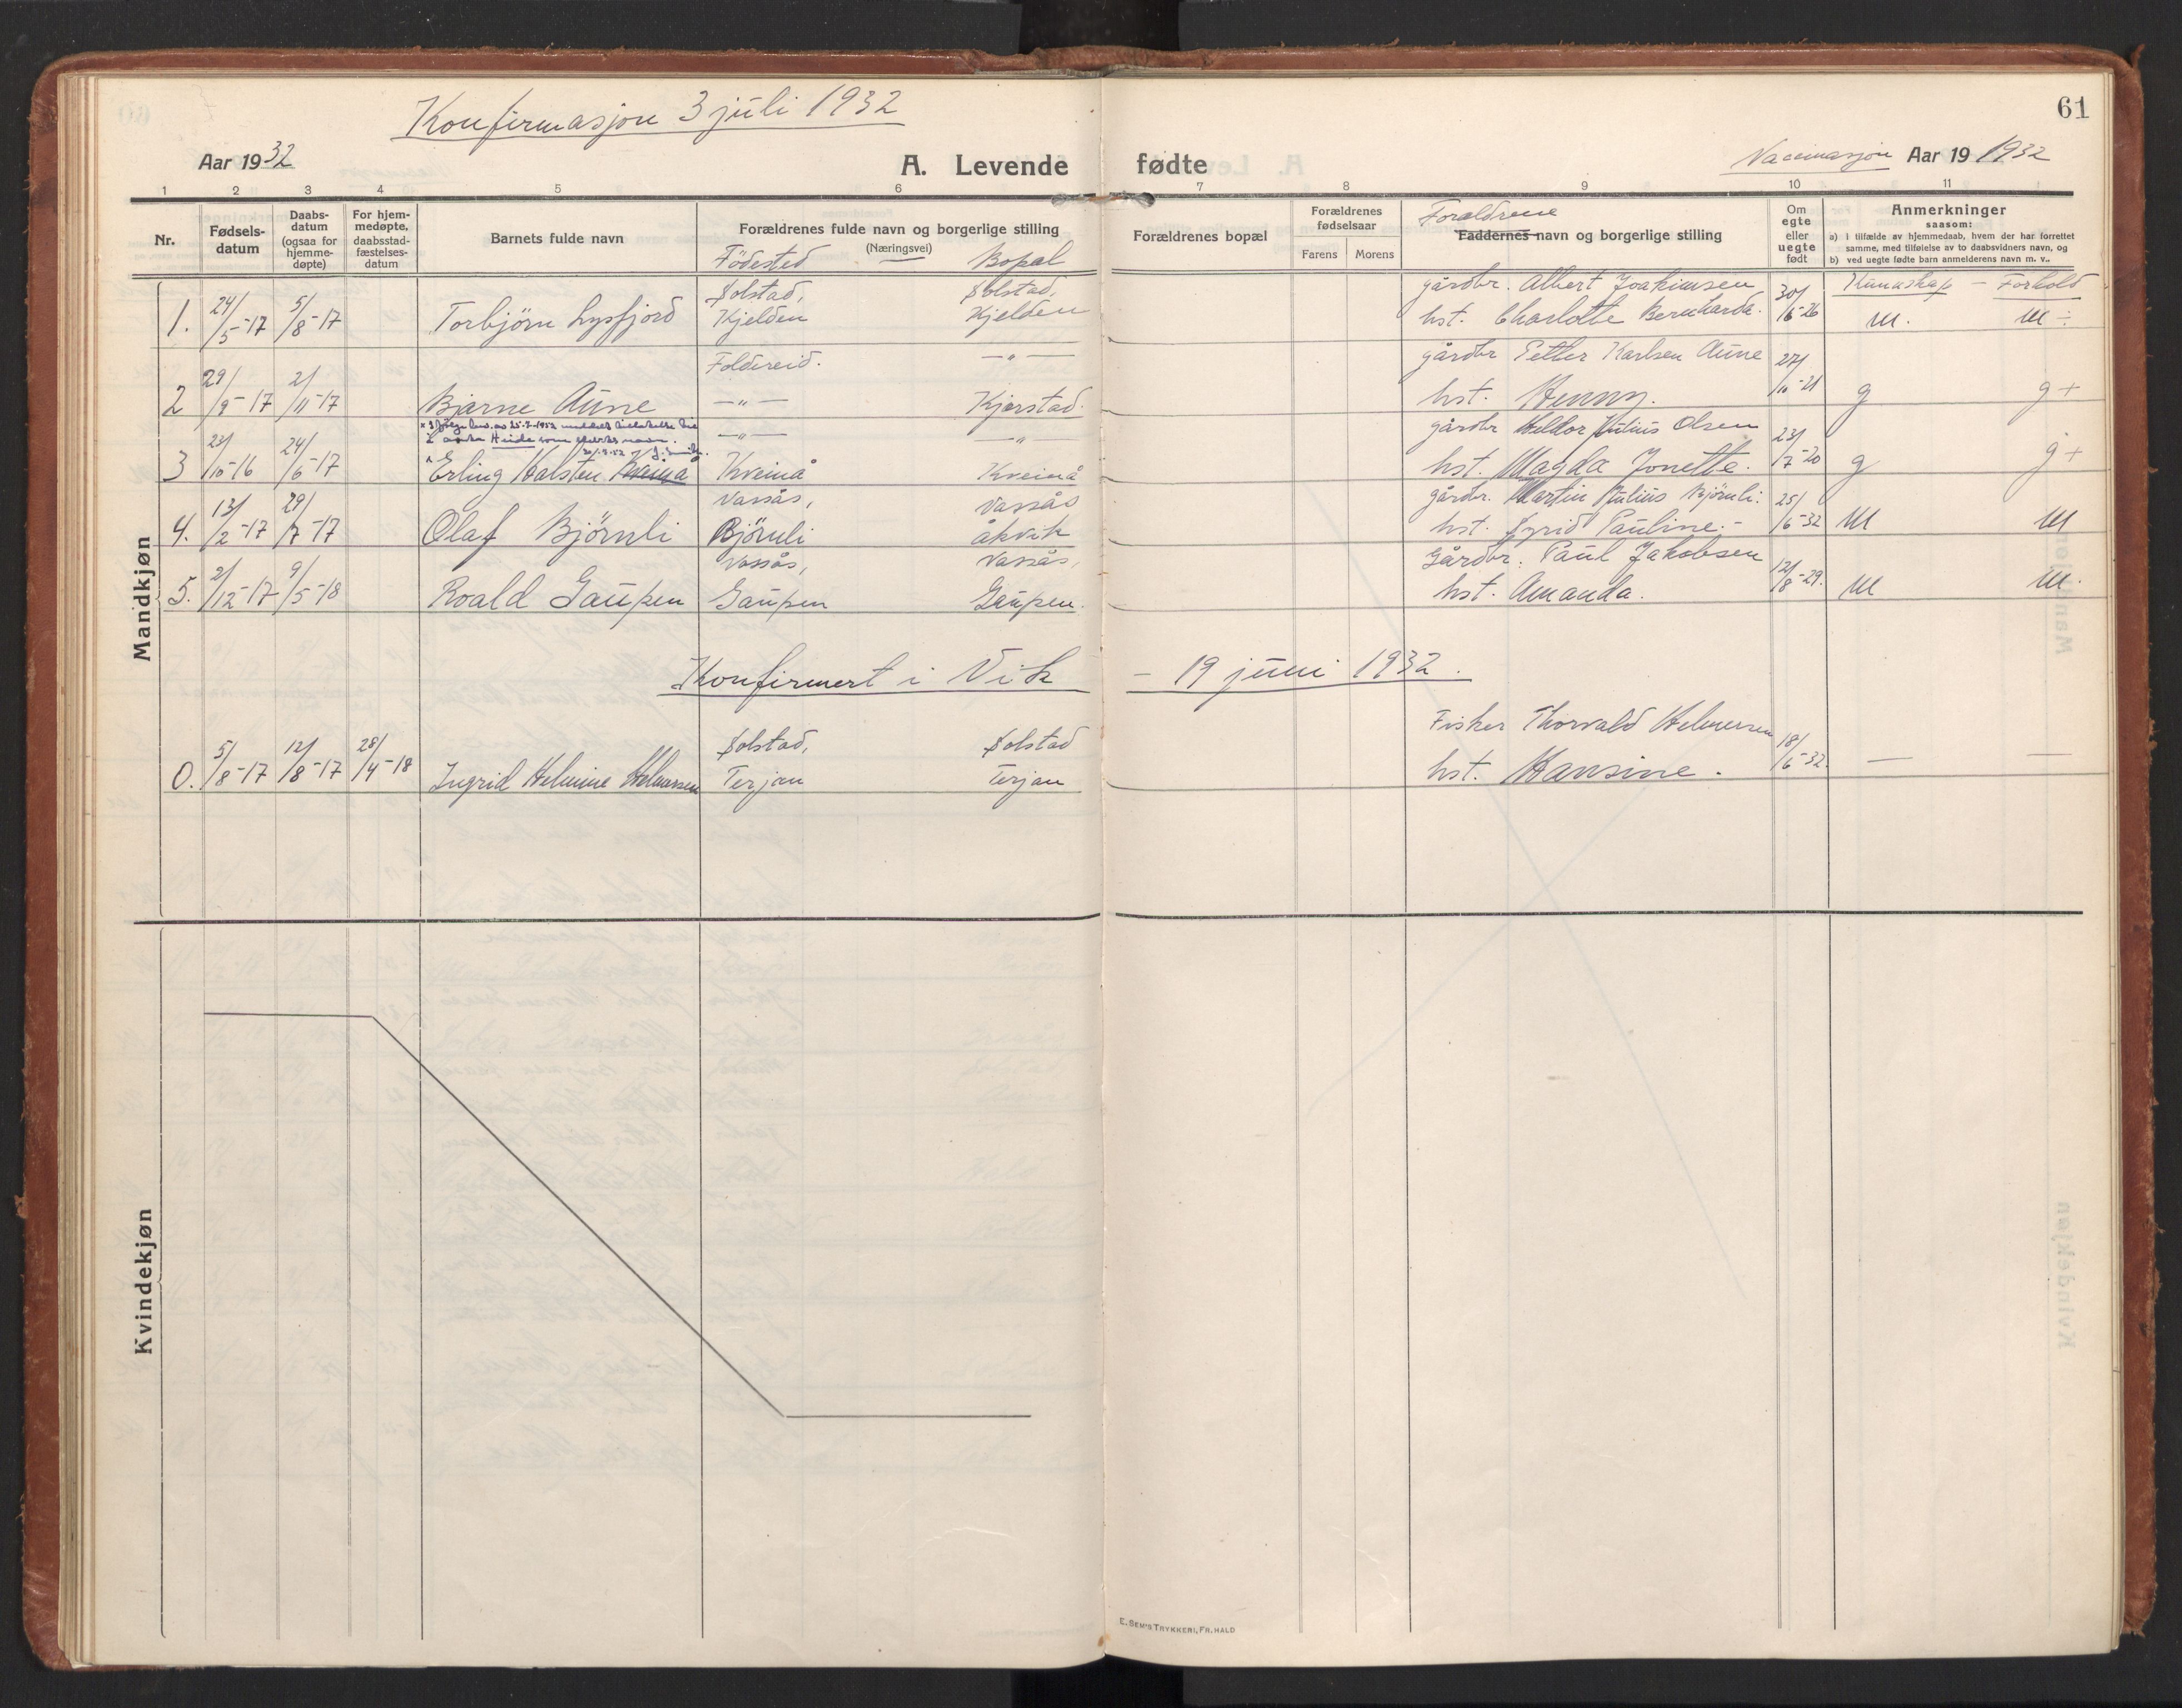 Konfirmasjon 3 juli 1932
61
Aar 1932
A. Levende fødte
Vaccinasjon Aar 19 1932
1 2 3 4 5 6 7 8 9 10 11
Nr.
Fødsels-
datum
Daabs-
datum
(ogsaa for
hjemme-
døpte)
For hjem-
medøpte,
daabsstad-
fæstelses-
datum
Barnets fulde navn
Forældrenes fulde navn og borgerlige stilling
(Næringsvei)
Födested Bopæl
Forældrenes bopæl
Forældrenes
fødselsaar
Farens Morens
Foreldrene
Faddernes navn og borgerlige stilling
Om
egte
eller
uegte
født
Anmerkninger
saasom:
a) i tilfælde av hjemmedaab, hvem der har forrettet
samme, med tilføielse av to daabsvidners navn, og
b) ved uegte fødte barn anmelderens navn m. v..
Kunnskap – Forhold
Mandkjøn
Solstad, Solstad, gårdbr. Albert Joakimsen
1. 24/5-17 5/8-17 Torbjörn Lysfjord Kjelden Kjelden hst. Charlotte Bernharda. 30/6-26 M. M ÷
Foldereid. —"— gårdbr Petter Karlsen Aune
2 29/9-17 2/11-17 Bjarne Aune —"— Kjerstad. hst. Henny. 27/10-21 g g+
—"— —"— gårdbr Heldor Julius Olsen
3 23/10-16 24/6-17 × Erling Halsten Kveinå Kveinå Kveinå hst. Magda Jonette. 23/7-20 g g+
Vassås, Vassås gårdbr. Martin Julius Björnli.
4. 13/2-17 29/7-17 Olaf Björnli Björnli åkvik hst. Syrid Pauline.- 25/6-32 M M
Vassås, Vassås, Gårdbr. Paul Jakobsen
5. 2/12-17 9/5-18 Roald Gaupen Gaupen Gaupen. hst. Amanda. 12/8-29. M M.
Konfirmert i Vik – 19 juni 1932.
Solstad, Solstad Fisker Thorvald Helmersen
0. 5/8-17 12/8-17 28/4-18 Ingrid Helmine Helmersen Terjan Terjan hst. Hansine. 18/6-32. — —
Kvindekjøn
E. SEM'S TRYKKERI, FR.HALD